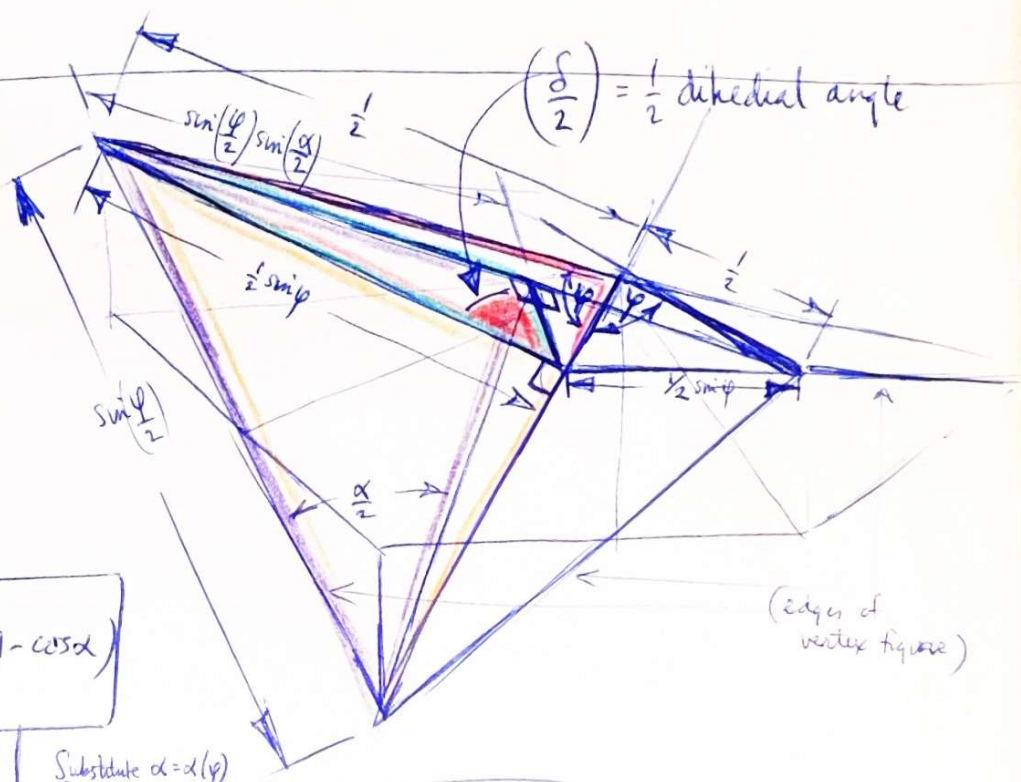 (δ/2) = ½ dihedial angle
½
sin(φ/2) sin(α/2)
½
½ sin φ
φ
φ
½ sin φ
sin(φ/2)
α/2
(edges of
vertex figure)
1 - cos α)
Substitute α = α(φ)